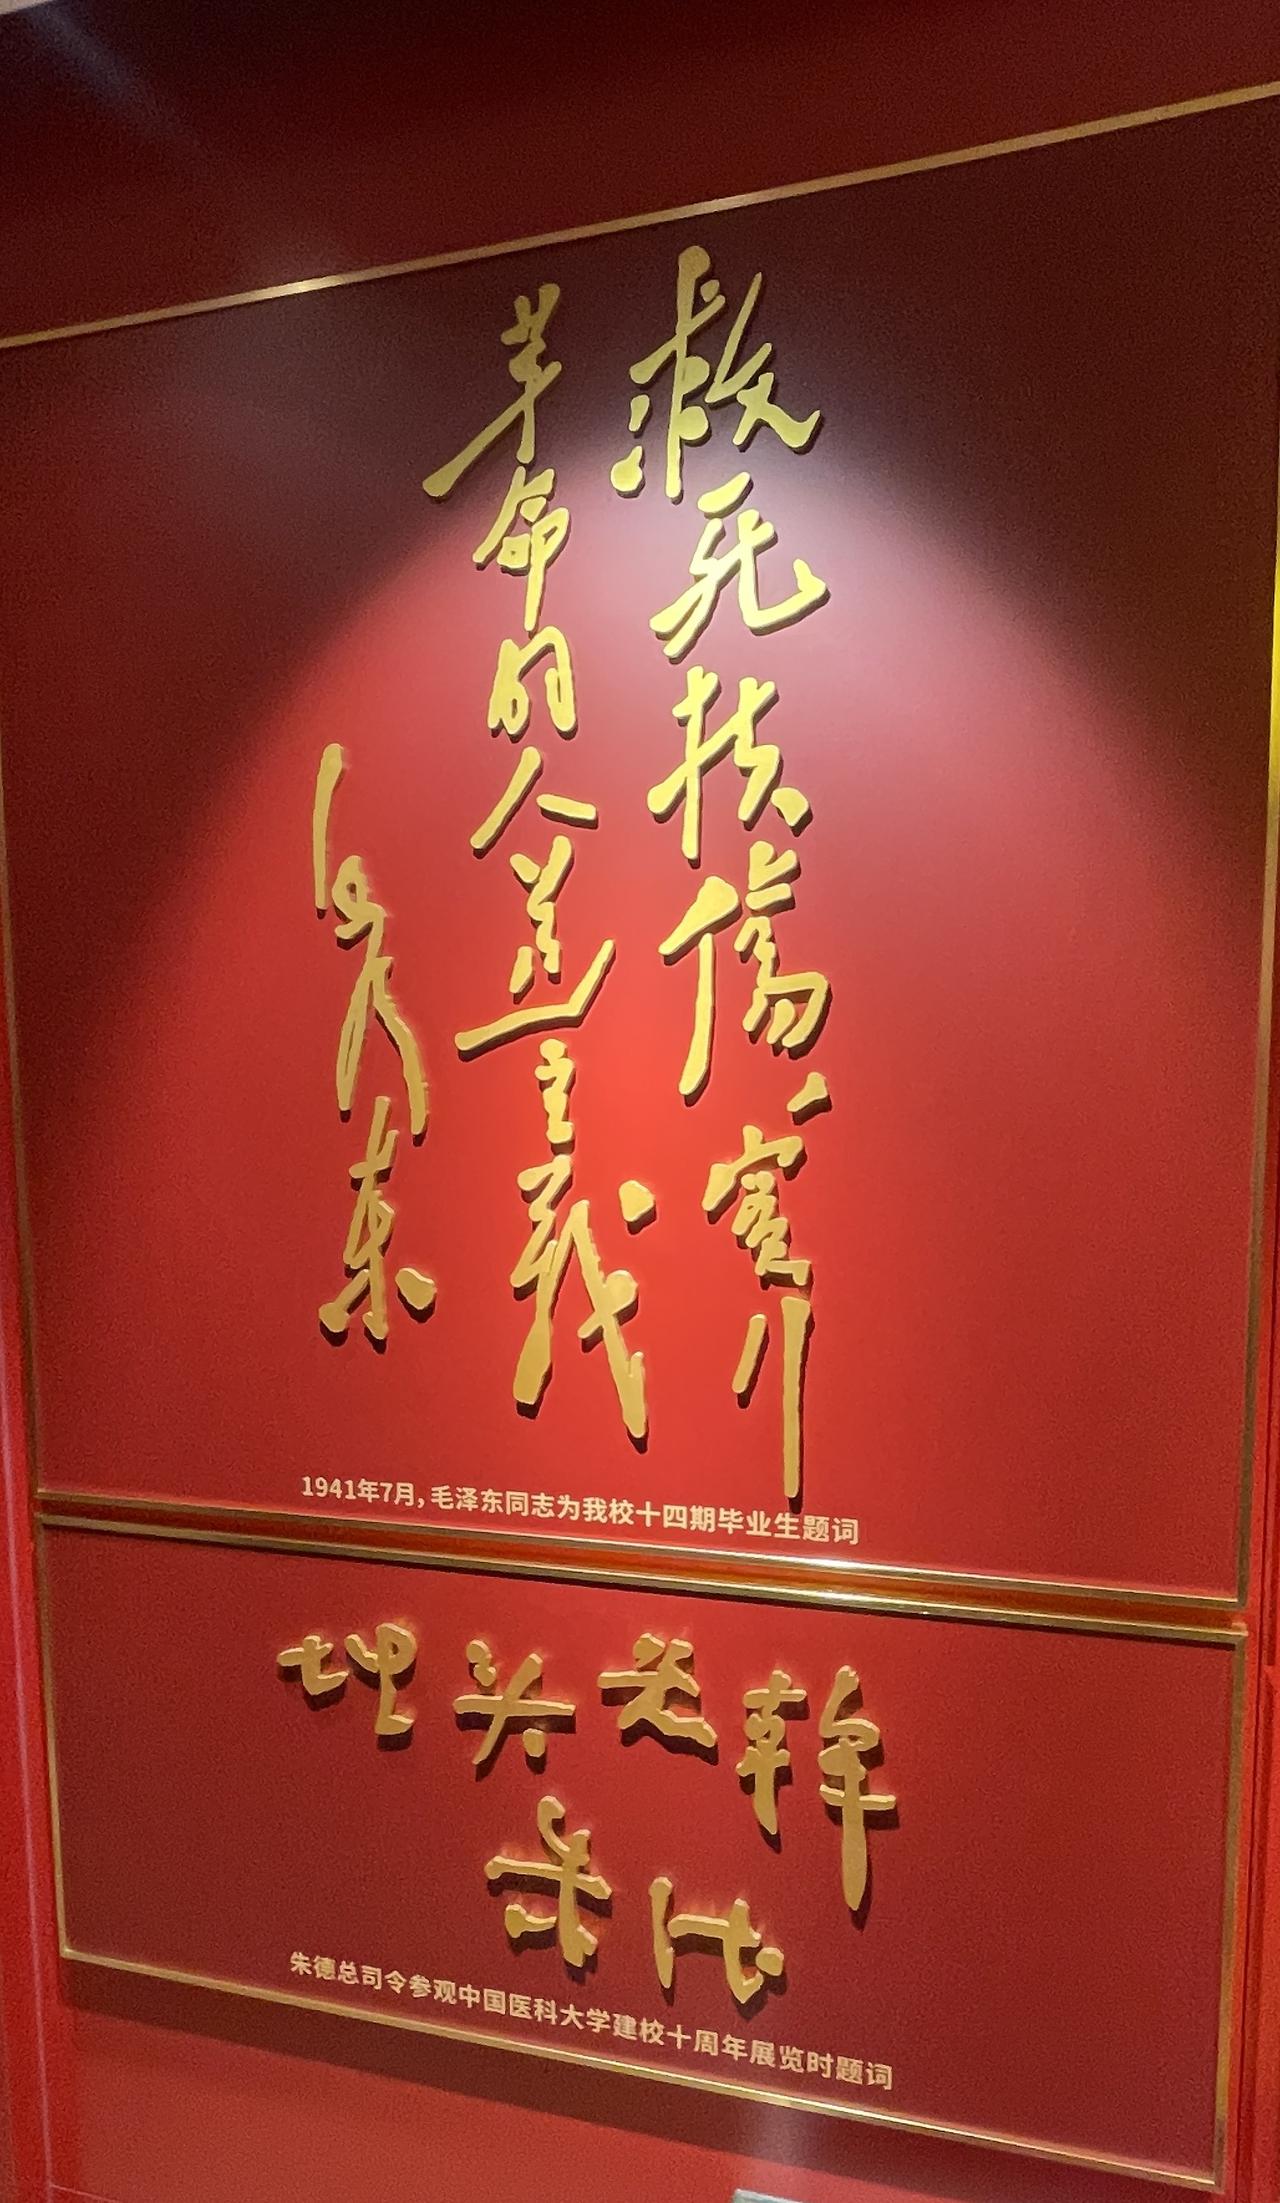 救死扶傷、實行
革命的人道主義
毛澤東
1941年7月，毛泽东同志为我校十四期毕业生题词
埋头苦幹
朱德
朱德总司令参观中国医科大学建校十周年展览时题词